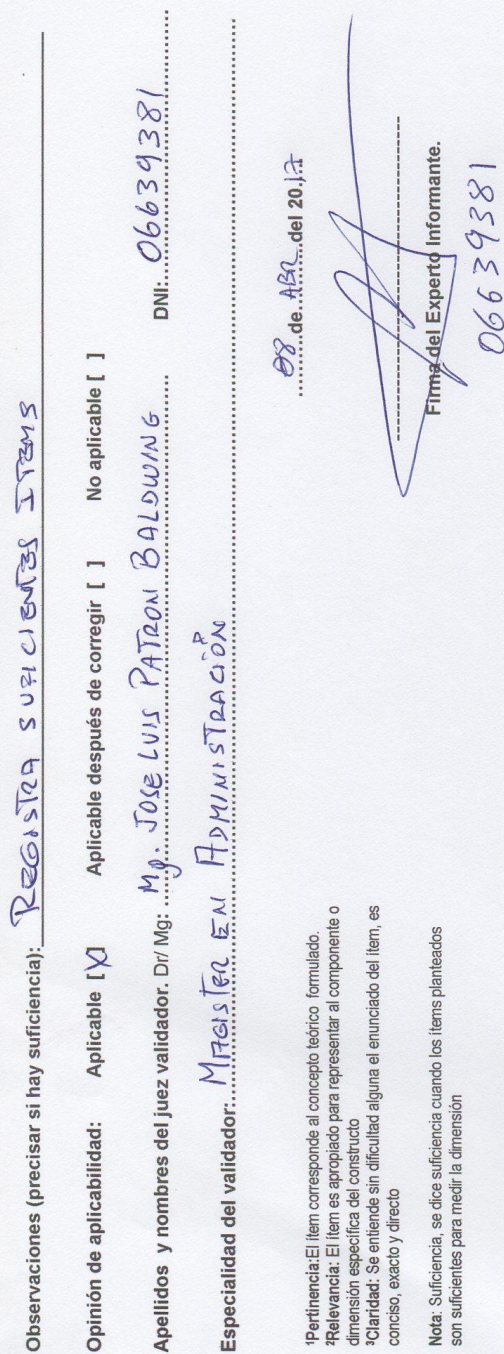 Observaciones (precisar si hay suficiencia): REGISTRA SUFICIENTES ITEMS
Opinión de aplicabilidad: Aplicable [X] Aplicable después de corregir [ ] No aplicable [ ]
Apellidos y nombres del juez validador. Dr/ Mg: Mg. JOSE LUIS PATRON BALDWING DNI: 06639381
Especialidad del validador: MAGISTER EN ADMINISTRACIÓN
08 de ABR del 2017
¹Pertinencia: El ítem corresponde al concepto teórico formulado.
²Relevancia: El ítem es apropiado para representar al componente o
dimensión específica del constructo
³Claridad: Se entiende sin dificultad alguna el enunciado del ítem, es
conciso, exacto y directo
Nota: Suficiencia, se dice suficiencia cuando los ítems planteados
son suficientes para medir la dimensión
Firma del Experto Informante.
06639381